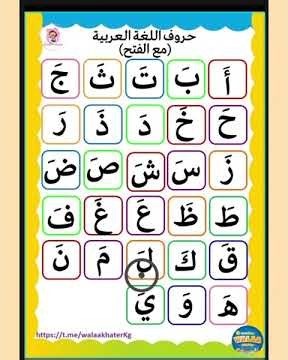 حروف اللغة العربية
(مع الفتح)
أَ بَ تَ ثَ جَ
حَ خَ دَ ذَ رَ
زَ سَ شَ صَ ضَ
طَ ظَ عَ غَ فَ
قَ كَ لَ مَ نَ
هَ وَ يَ
https://t.me/walaakhaterKg
WALAA